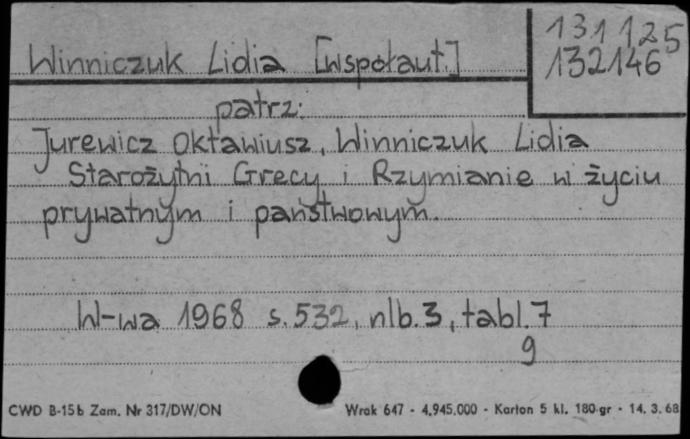 131125
132146
Winniczuk Lidia [współaut.]
patrz:
Jurewicz Oktawiusz, Winniczuk Lidia
Starożytni Grecy i Rzymianie w życiu
prywatnym i państwowym.
W-wa 1968 s. 532, nlb. 3, tabl. 7
9
CWD B-15b Zam. Nr 317/DW/ON Wrak 647 - 4.945.000 - Karton 5 kl. 180 gr - 14. 3. 68